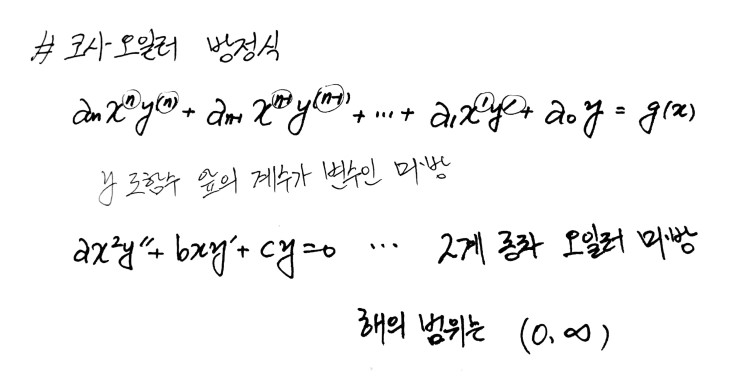 # 코시-오일러 방정식
aₙxⁿy⁽ⁿ⁾ + aₙ₋₁xⁿ⁻¹y⁽ⁿ⁻¹⁾ + ... + a₁x¹y' + a₀y = g(x)
y 도함수 앞의 계수가 변수인 미방
ax²y'' + bxy' + cy = 0 ... 2계 동차 오일러 미방
해의 범위는 (0, ∞)